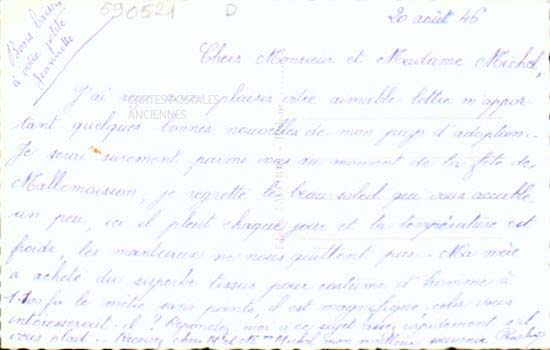 590521
D
20 août 46
Bons baisers
à votre petite
Jeannette
Chers Monsieur et Madame Michel,
J'ai reçu avec plaisir votre aimable lettre m'appor-
CARTES POSTALES
ANCIENNES
tant quelques bonnes nouvelles de mon pays d'adoption.
Je serai surement parmi vous au moment de la fête de
Mallemoisson, je regrette le beau soleil qui vous accable
un peu, ici il pleut chaque jour et la température est
froide, les manteaux ne nous quittent pas. Ma mère
a acheté du superbe tissus pour costume d'homme à
le mètre sans points, il est magnifique, cela vous
intéresserait-il ? Répondez moi à ce sujet assez rapidement s'il
vous plait. Recevez chers Mr et Mme Michel mon meilleur souvenir